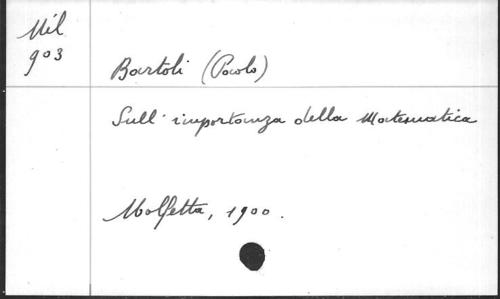 Mil
903
Bartoli (Paolo)
Sull' importanza della Matematica
Molfetta, 1900.